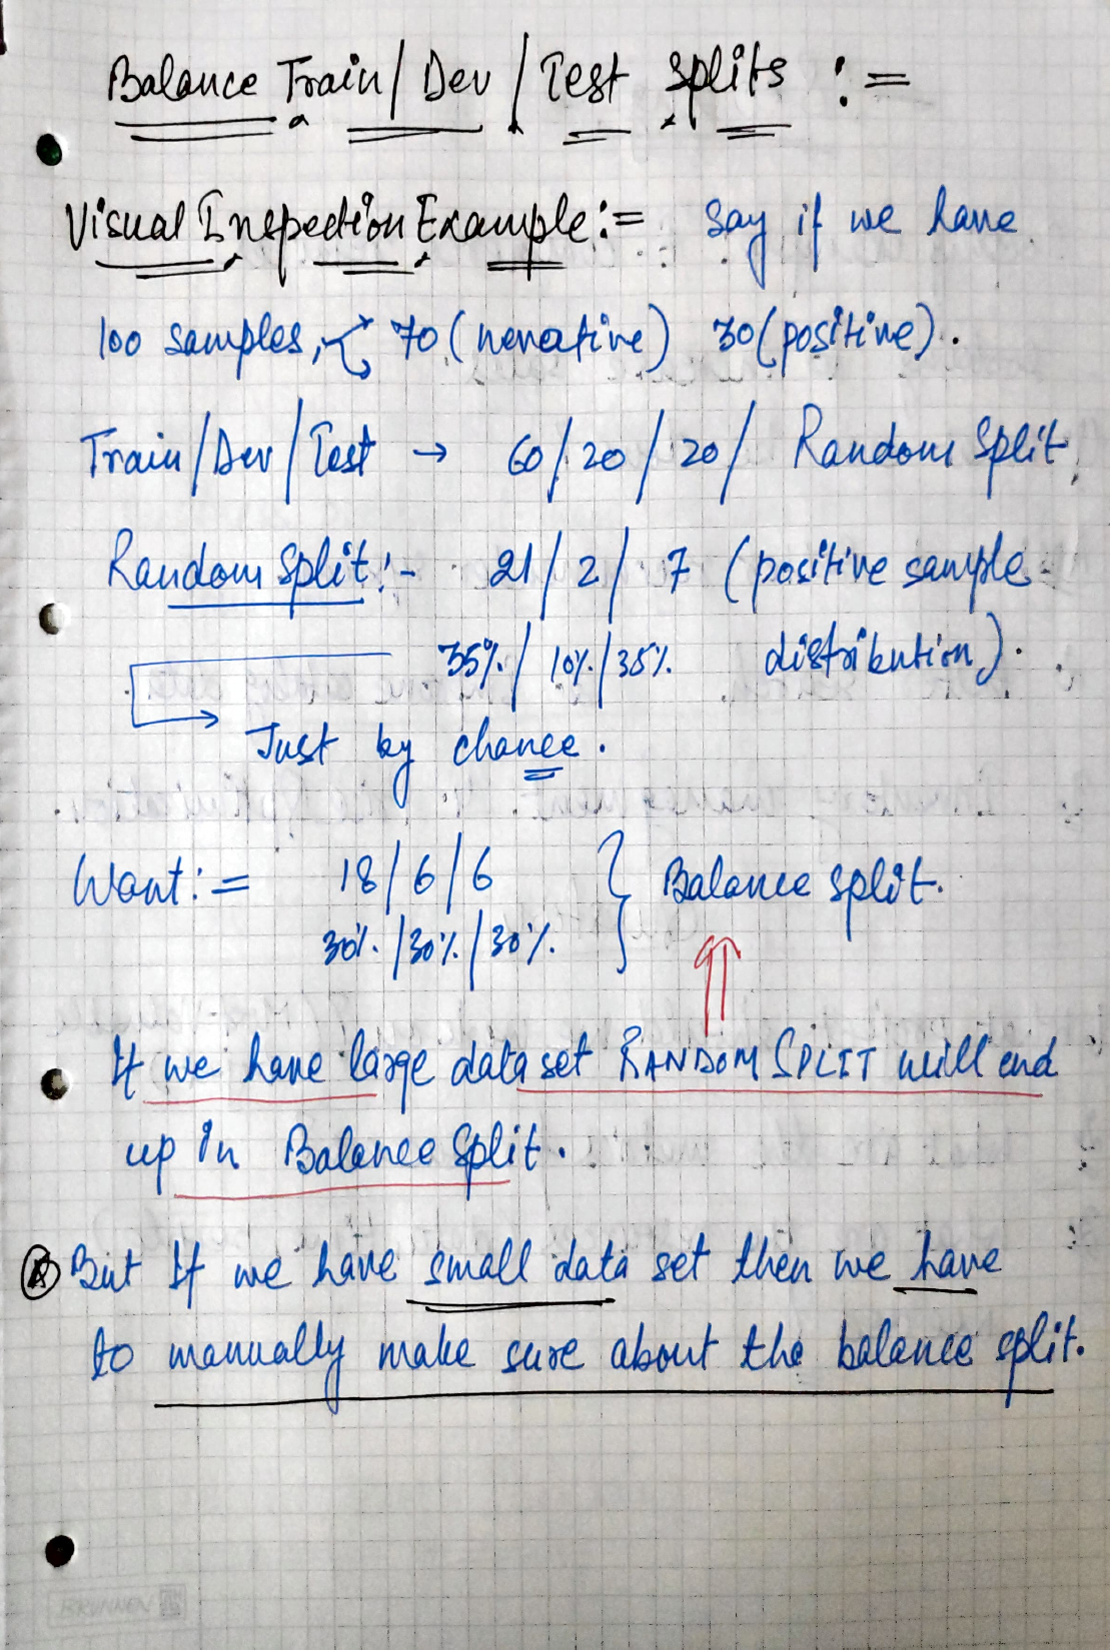 Balance Train / Dev / Test splits :=
Visual Inspection Example := Say if we have
100 samples, 70 (nevative) 30 (positive).
Train / Dev / Test → 60 / 20 / 20 / Random Split,
Random Split :- 21 / 2 / 7 (positive sample
35% / 10% / 35% distribution).
Just by chance.
Want := 18 / 6 / 6 } Balance split.
30% / 30% / 30%.
If we have large data set RANDOM SPLIT will end
up in Balance Split.
But If we have small data set then we have
to manually make sure about the balance split.
BRUNNEN